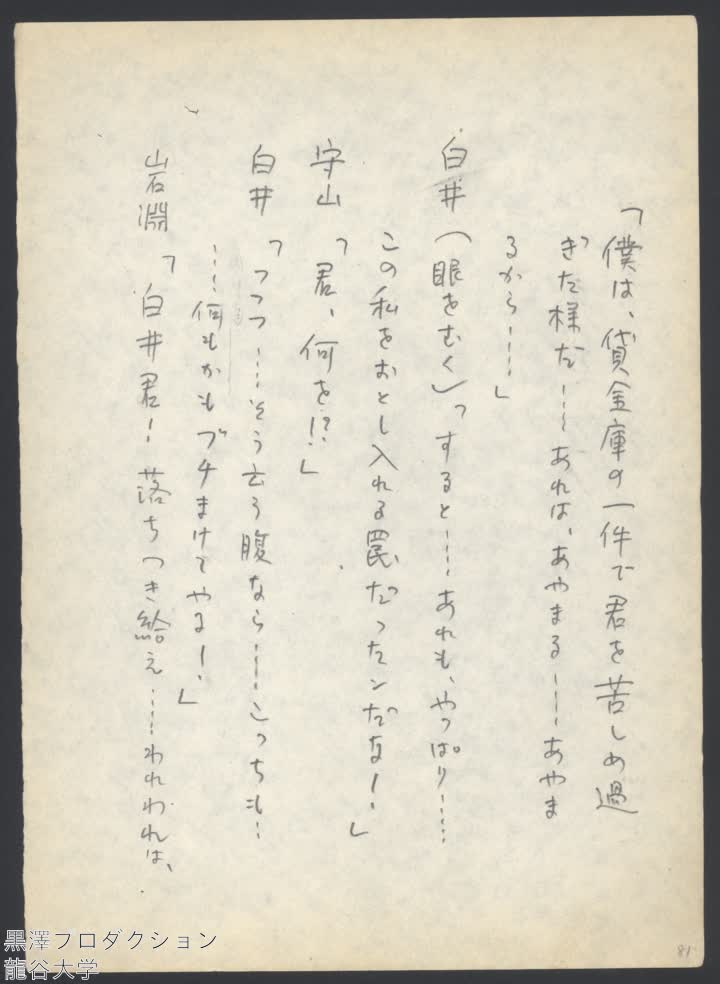 「僕は、貸金庫の一件で君を苦しめ過
ぎた様だ……あれは、あやまる……あやま
るから……」
白井（眼をむく）「すると……あれも、やっぱり……
この私をおとし入れる罠だったンだな！」
守山「君、何を!?」
白井「つつつ……そう云う腹なら……こっちも…
……何もかもブチまけてやる！」
岩淵「白井君！落ちつき給え……われわれは、
81
黒澤プロダクション
龍谷大学